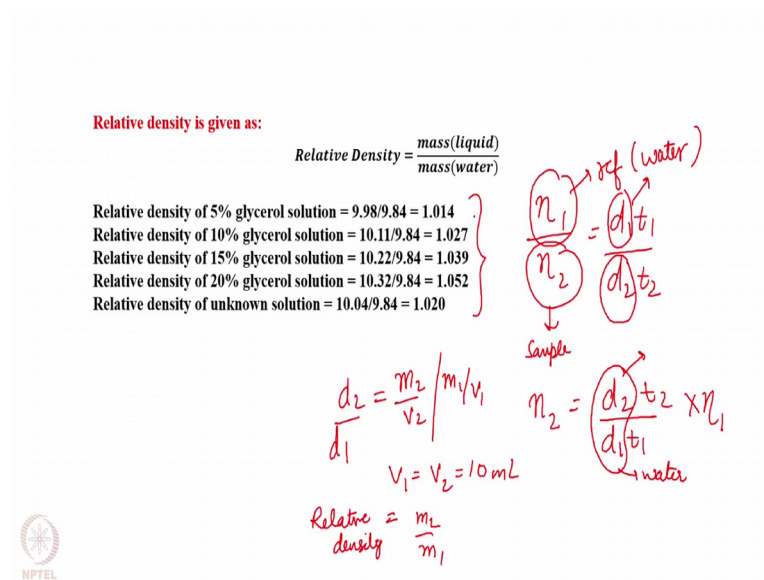 Relative density is given as:
Relative Density = mass(liquid)/mass(water)
Relative density of 5% glycerol solution = 9.98/9.84 = 1.014
Relative density of 10% glycerol solution = 10.11/9.84 = 1.027
Relative density of 15% glycerol solution = 10.22/9.84 = 1.039
Relative density of 20% glycerol solution = 10.32/9.84 = 1.052
Relative density of unknown solution = 10.04/9.84 = 1.020
ref (water)
η₁/η₂ = d₁t₁/d₂t₂
Sample
d₂/d₁ = m₂/v₂ / m₁/v₁
η₂ = d₂t₂/d₁t₁ × η₁
water
V₁ = V₂ = 10 mL
Relative density = m₂/m₁
NPTEL